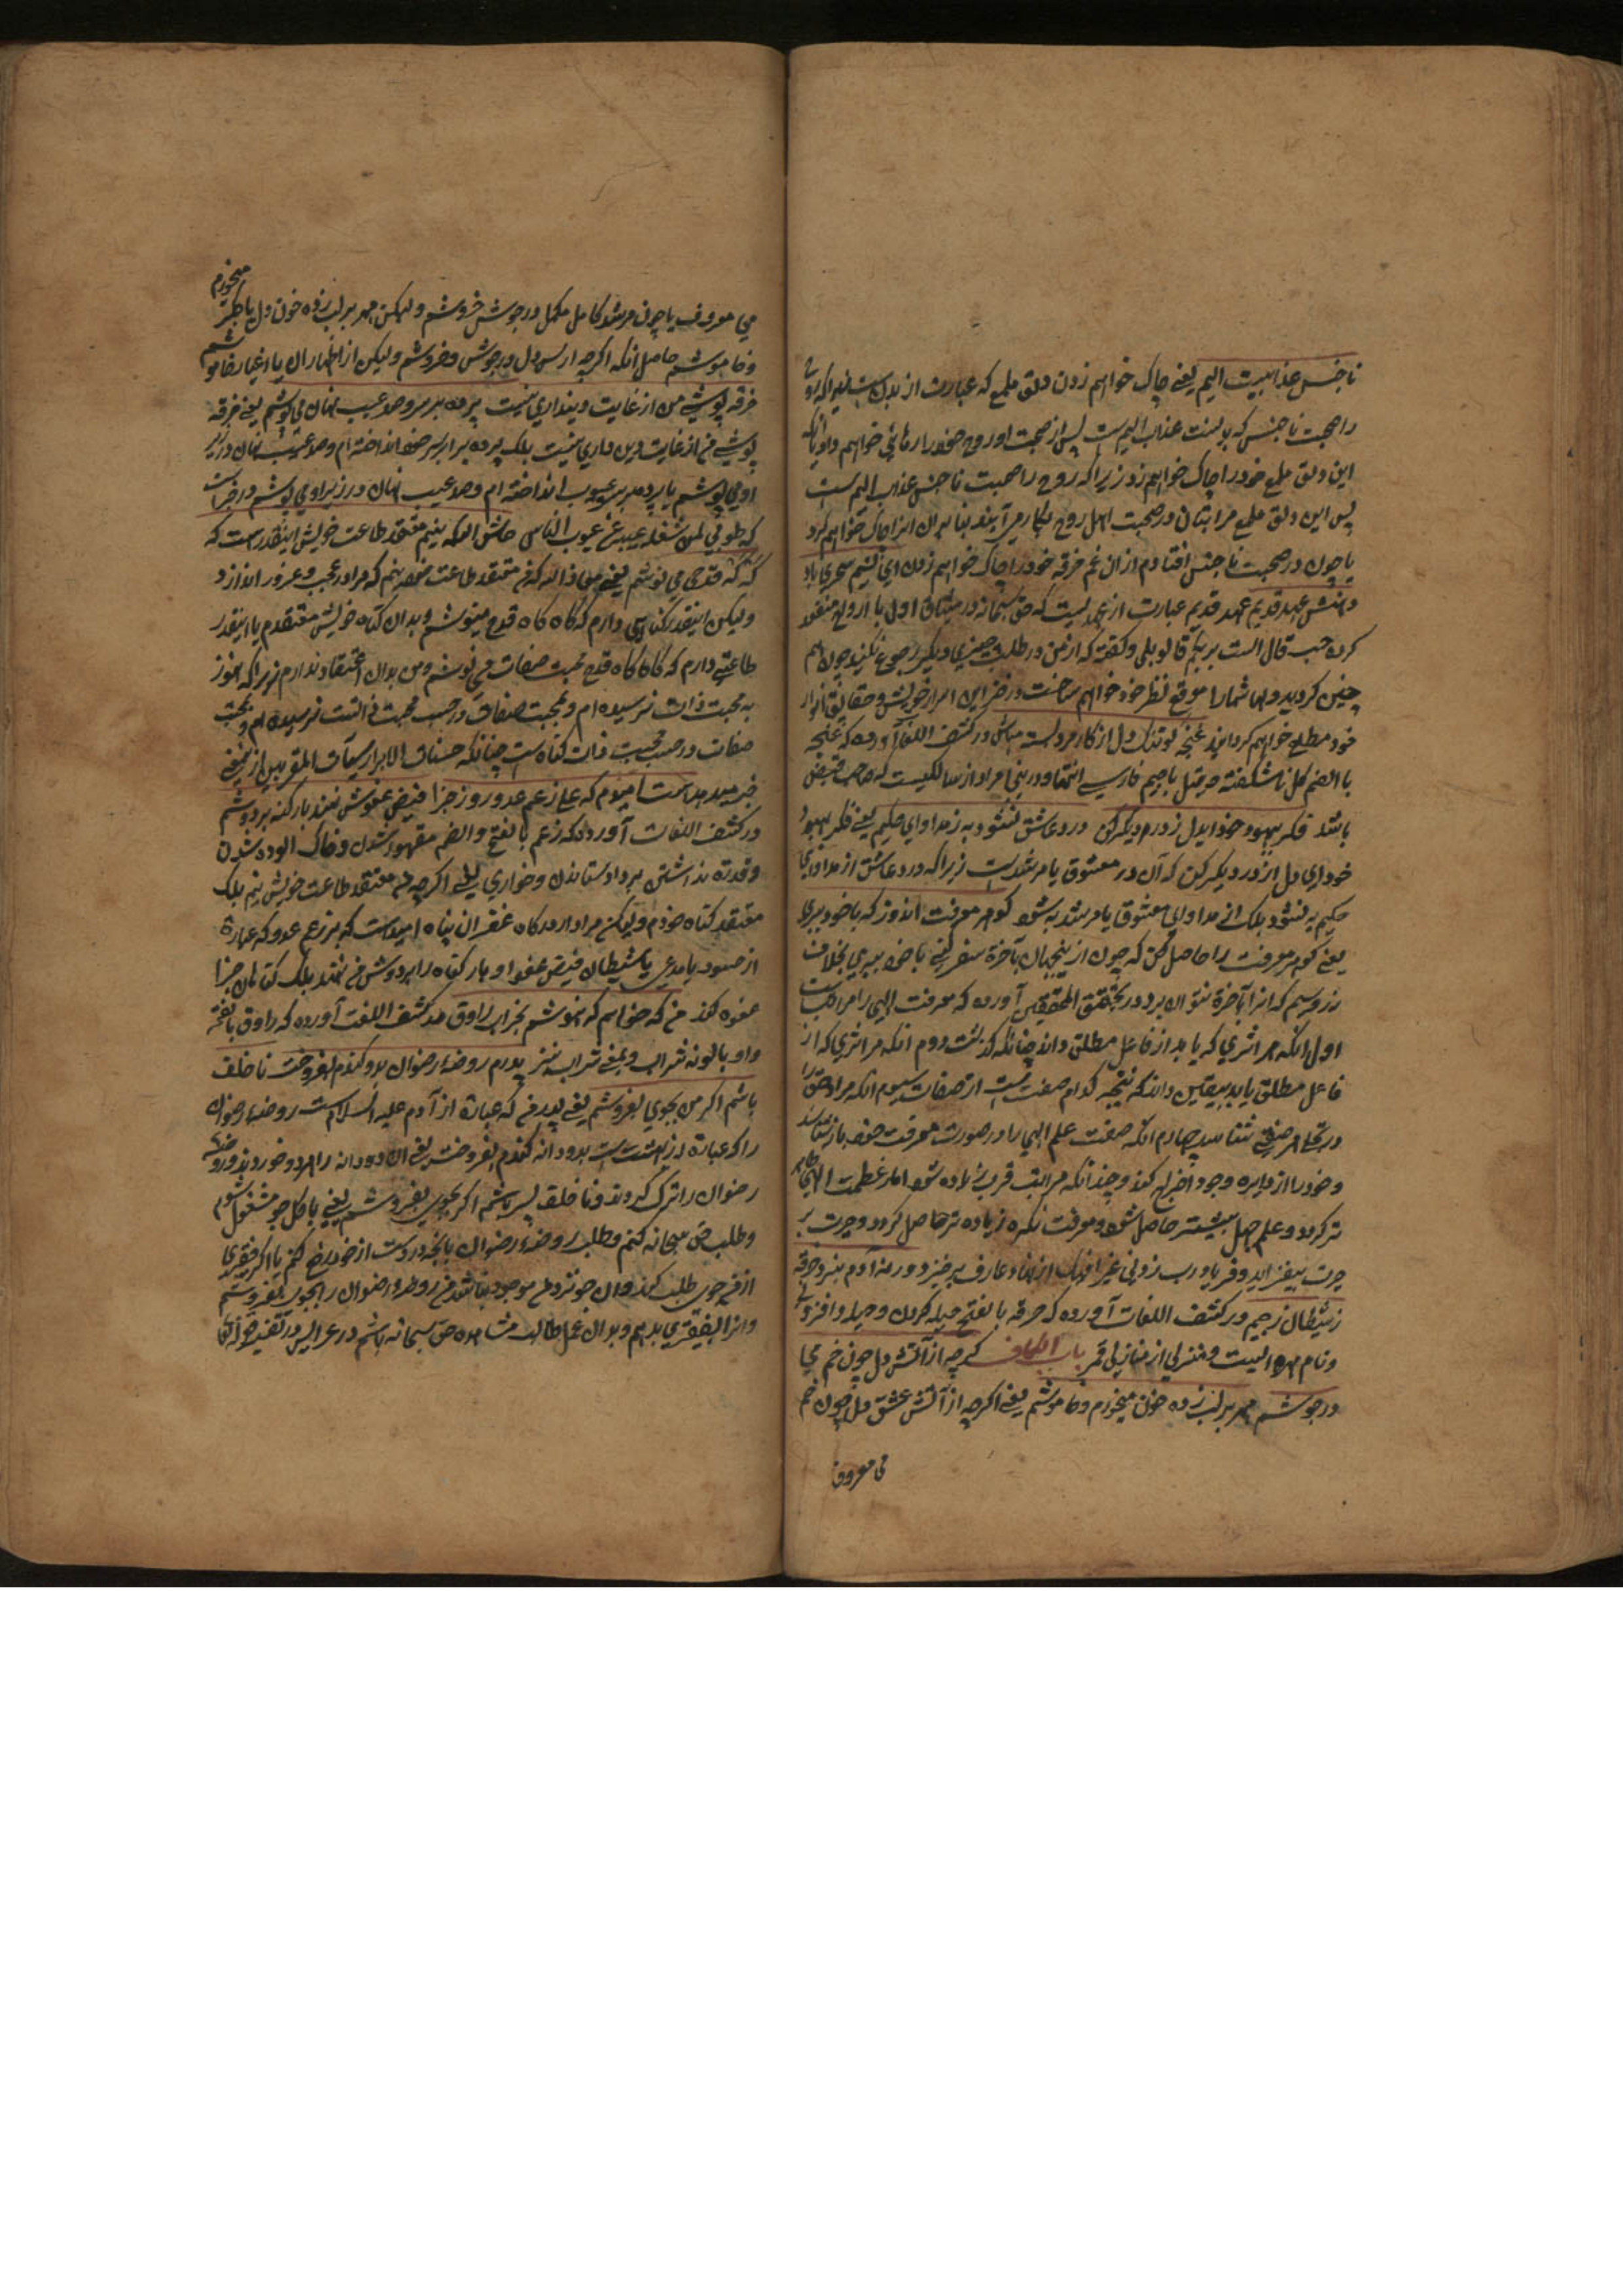 ناجنس عذابیست الیم یعنی چاک خواهم زدن دلق ملمع که عبارت از بدن است زیرا که روح
را صحبت ناجنس که بدنست عذاب الیم است پس از صحبت او روح خود را رهائی خواهم داد یا آنکه
این دلق ملمع خود را چاک خواهم زد زیرا که روح را صحبت ناجنس عذاب الیم است
پس این دلق ملمع مرا بتان در صحبت اهل روح بکار می آیند بنا بران انرا چاک خواهم کرد
یا چون در صحبت ناجنس افتادم از ان غم خرقه خود را چاک خواهم زدن ای نسیم سحری یاد
دهش عهد قدیم عهد قدیم عبارت از عهدیست که حق سبحانه در میثاق اول با ارواح منعقد
کرد حیث قال الست بربکم قالوا بلی و گفته که از من در طلب چیزی دیگر رجوع نکنید چون هم
چنین کردید والها شما را موقع نظر خود خواهم ساخت و از این اسرار خویش و حقایق انوار
خود مطلع خواهم گردانید غنچه گو تنگ دل از کار فروبسته مباش در کشف اللغات آورده که غنچه
بالضم گل ناشکفته و قیل باجیم فارسی انتهی و درینجا مراد از سالکیست که صاحب قبض
باشد فکر بهبود خود ایدل ز در دیگر کن درد عاشق نشود به ز مداوای حکیم یعنی فکر بهبود
خود ای دل از در دیگر کن که آن در معشوق یا مرشد است زیرا که درد عاشق از مداوای
حکیم به نشود بلکه از مداوای معشوق یا مرشد به شود گوهر معرفت اندوز که با خود ببری
یعنی گوهر معرفت را حاصل کن که چون از ینجهان بآخرة سفر کنی با خود ببری بخلاف
زر و سیم که انرا بآخرة نتوان برد در تحقیق المحققین آورده که معرفت الهی را مراتب است
اول آنکه هر اثری که یابد از فاعل مطلق داند چنانکه گذشت دوم آنکه هر اثری که از
فاعل مطلق یابد بیقین داند که نتیجه کدام صفت است از صفات سیوم آنکه مراد حق را
در تجلی هر صفتی شناسد چهارم آنکه صفت علم الهی را در صورت معرفت خود باز شناسد
و خود را از دایره وجود اخراج کند و چندانکه مراتب قرب زیاده شود اثار عظمت الهی ظاهر
تر گردد و علم جهل بیشتر حاصل شود و معرفت نکره زیاده تر حاصل گردد و حیرت بر
حیرت بیفزاید و فریاد رب زدنی تحیرا فیک از نهاد عارف برخیزد ورنه آدم نبرد حرقه
ز شیطان رجیم در کشف اللغات آورده که حرقه بالفتح حیله کردن و حیله و افزونی
و نام مهره ایست و منزلی از منازل قمر باب الکاف گرچه از آتش دل چون خم می
در جوشم مهر بر لب زده خون میخورم و خاموشم یعنی اگرچه از آتش عشق دل چون خم
می معروف
میخورم
می معروف یا چون مرشد کامل مکمل در جوش خروشم ولیکن مهر بر لب زده خون دل یا جگر
و خاموشم حاصل آنکه اگرچه از سر دل در جوش و خروشم ولیکن از اظهار ان با اغیار خاموشم
خرقه پوشی من از غایت دینداری نیست پرده بر سر صد عیب نهان می پوشم یعنی خرقه
پوشی من از غایت دین داری نیست بلکه پرده بر سر خود انداخته ام و صد عیب نهان در زیر
او می پوشم یا پرده بر سر عیوب انداخته ام و صد عیب نهان در زیر او می پوشم در خبر است
که طوبی لمن شغله عیبه عن عیوب الناس حاش لله که نیم معتقد طاعت خویش اینقدر هست که
گه گه قدحی می نوشم یعنی معاذ الله که من معتقد طاعت خود نیم که مرا در عجب و غرور اندازد
ولیکن اینقدر گناهی دارم که گاه گاه قدح مینوشم و بدان گناه خویش معتقدم یا اینقدر
طاعتی دارم که گاه گاه قدح محبت صفات می نوشم و من بدان اعتقاد ندارم زیرا که هنوز
به محبت ذات نرسیده ام و محبت صفات در جنب محبت ذات نرسیده ام و محبت
صفات در جنب محبت ذات گناهست چنانکه حسنات الابرار سیئات المقربین ازینمعنی
خبر میدهد هست امیدم که علی رغم عدو روز جزا فیض عفوش ننهد بار گنه بر دوشم
در کشف اللغات آورده که رغم بالفتح و الضم مقهور شدن و خاک آلوده شدن
و قدرة نداشتن بر داد ستاندن و خواری یعنی اگرچه من معتقد طاعت خویش نیم بلکه
معتقد گناه خودم ولیکن مرا از درگاه غفران پناه امید است که برغم عدو که عبارة
از حسود یا مدعی یا شیطان فیض عفو او بار گناه را بر دوش من ننهد بلکه گناهان جزا
عفوه کند من که خواهم که ننوشم بجز از راوق خم در کشف اللغت آورده که راوق بالفتح
واو پالونه شراب و بمعنی شراب نیز پدرم روضه رضوان بدو گندم بفروخت ناخلف
باشم اگر من بجوی نفروشم یعنی پدر من که عبارة از آدم علیه السلام است روضه رضوان
را که عبارة از بهشت است بدو دانه گندم بفروخت یعنی ان دو دانه را خرد و خورد و روضه
رضوان را ترک کرد و ناخلف پسر باشم اگر بجوی نفروشم یعنی با کل جو مشغول شوم
و طلب حق سبحانه کنم و طلب روضه رضوان یا آنچه در وست از خود رفع کنم یا اگر فقیری
از من جوی طلب کند و ان جو نزد من موجود نباشد من روضه رضوان را بجوی نفروشم
و انرا بفقیری بدهم و بدان عمل طالب مشاهده حق سبحانه باشم در عرایس در تفسیر قوله تعالی